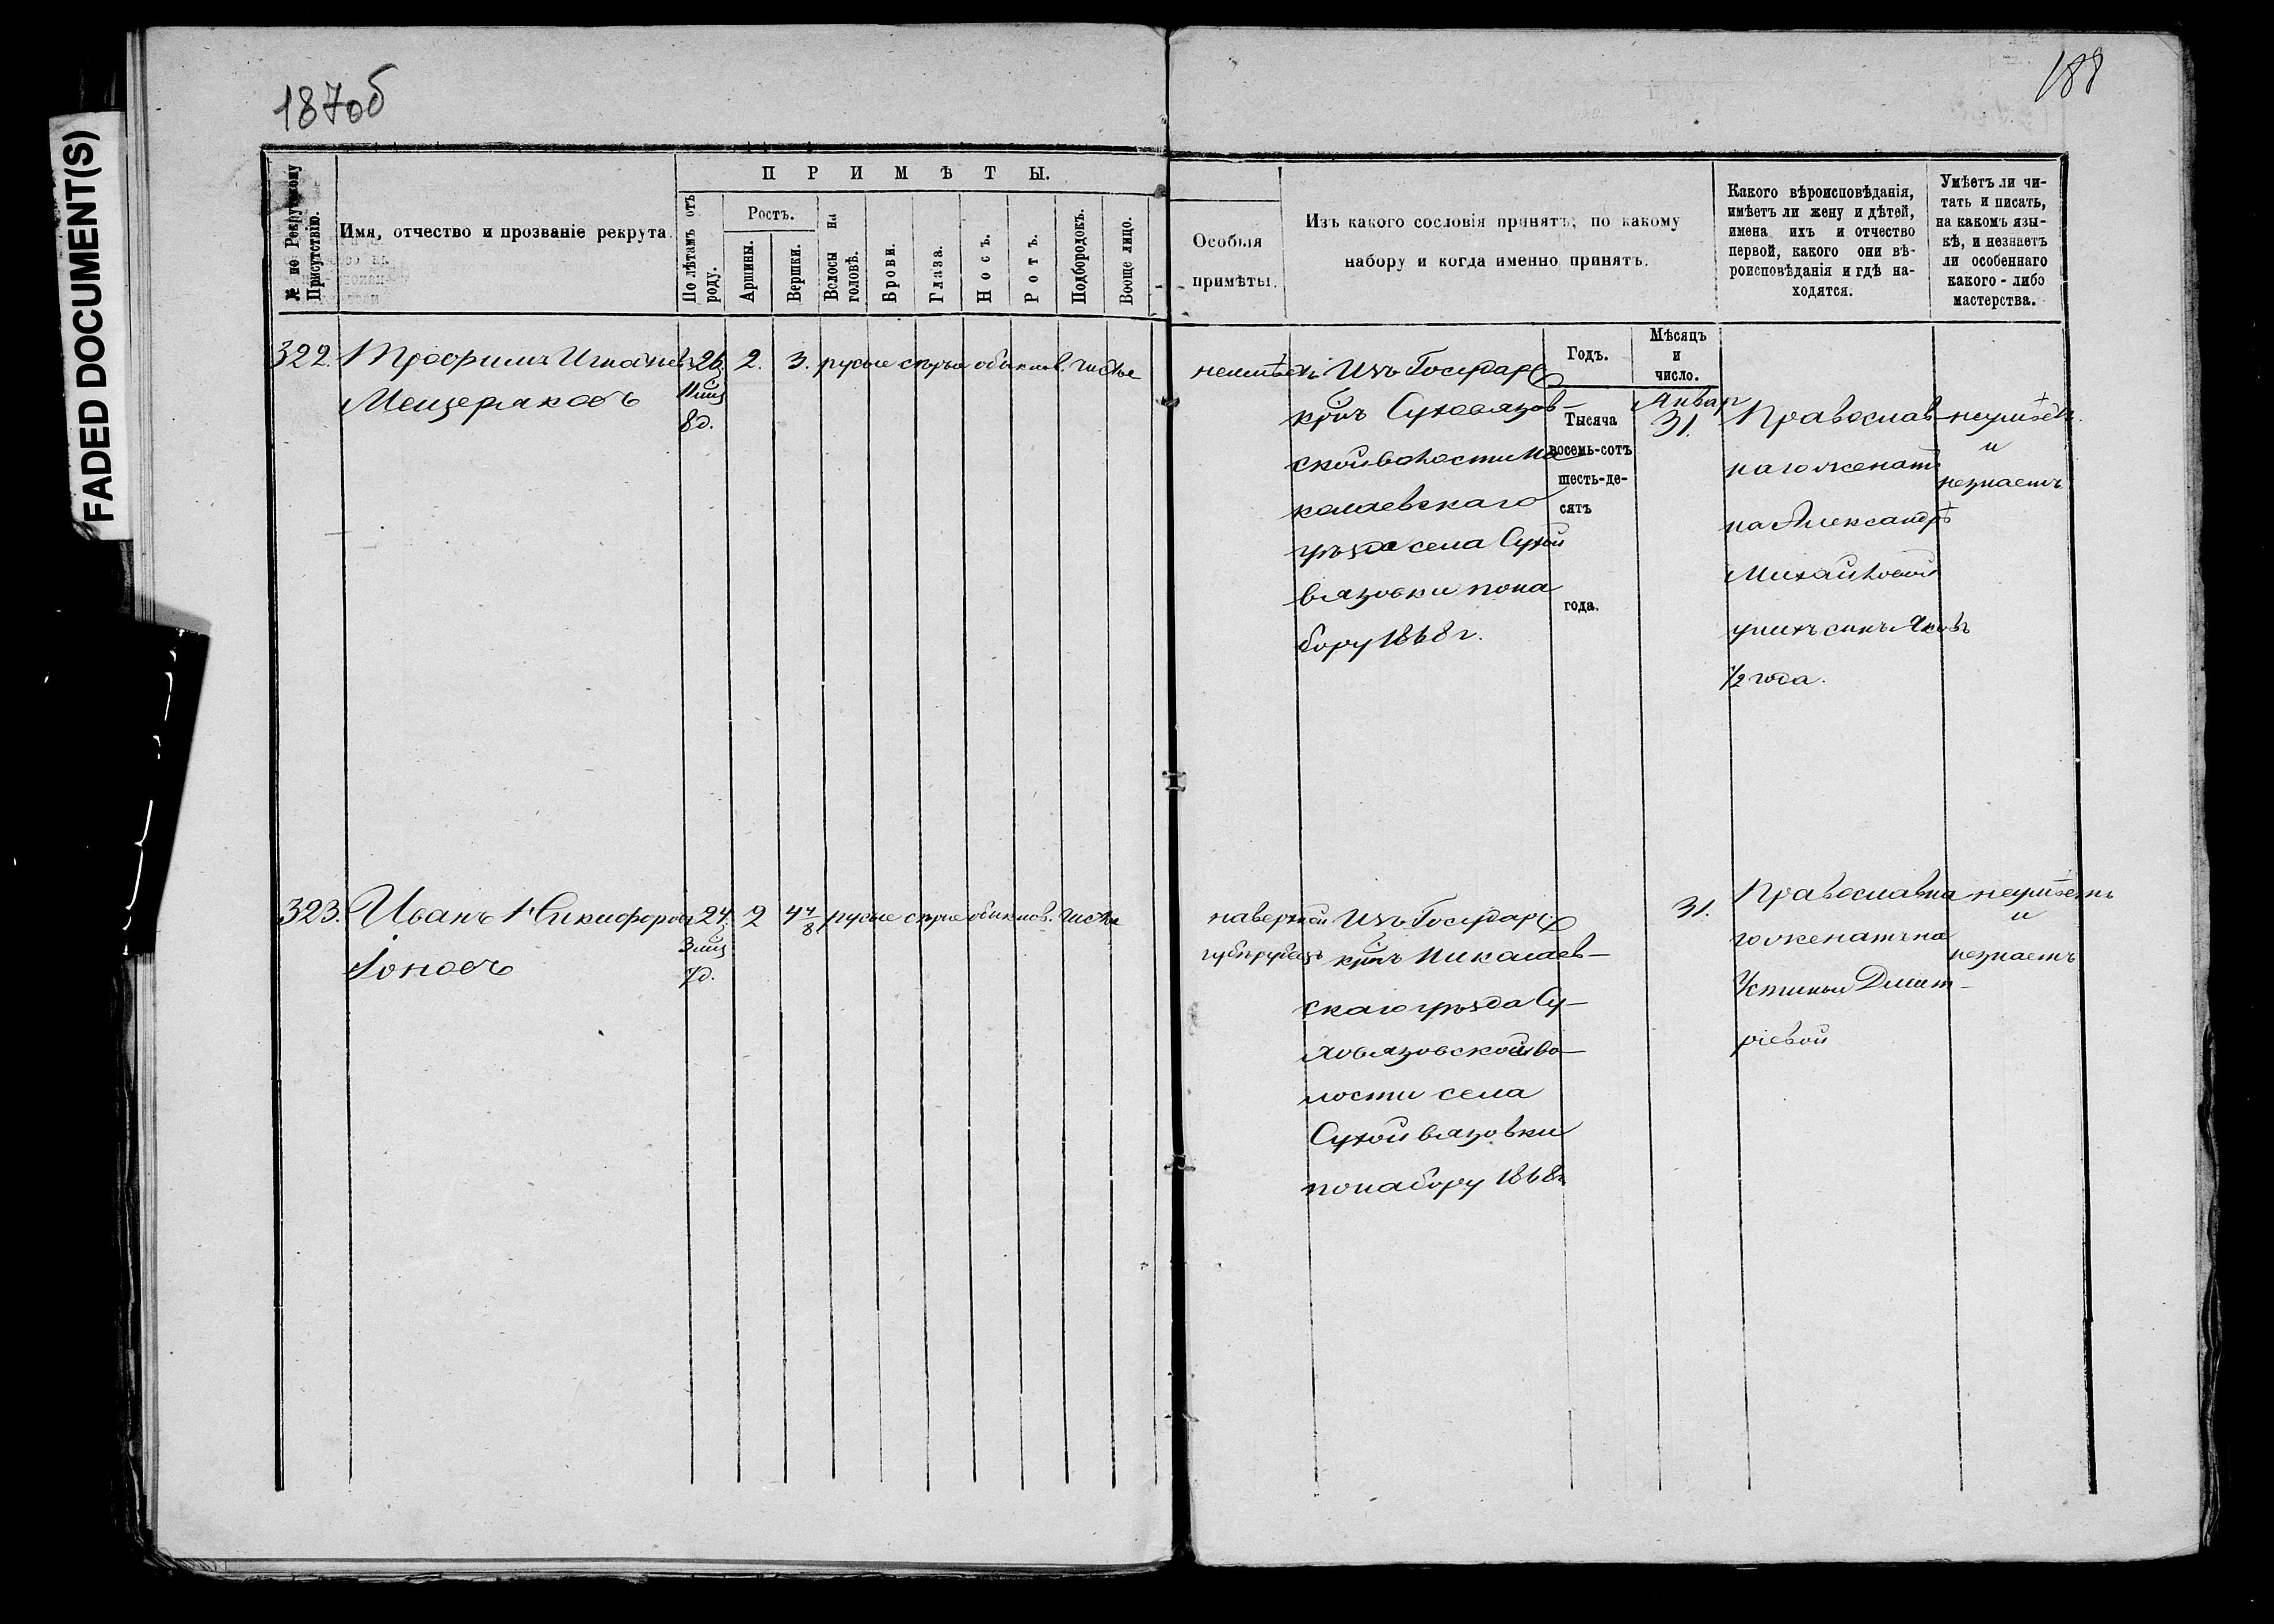 FADED DOCUMENT(S)
187об
188
№ по Рекрутскому Присутствію.
Имя, отчество и прозваніе рекрута.
ПРИМѢТЫ.
По лѣтамъ отъ роду.
Ростъ.
Аршины.
Вершки.
Волосы на головѣ.
Брови.
Глаза.
Носъ.
Ротъ.
Подбородокъ.
Вообще лицо.
Особыя
примѣты.
Изъ какого сословія принятъ; по какому
набору и когда именно принятъ.
Какого вѣроисповѣданія,
имѣетъ ли жену и дѣтей,
имена ихъ и отчество
первой, какого они вѣ-
роисповѣданія и гдѣ на-
ходятся.
Умѣетъ ли чи-
тать и писать,
на какомъ язы-
кѣ, и незнаетъ
ли особеннаго
какого-либо
мастерства.
Годъ.
Мѣсяцъ
и
число.
Тысяча
восемь-сотъ
шесть-де-
сятъ
года.
322. Трофимъ 26. 2. 3. русые сѣрые обыкнов. чистое
Мещеряковъ 11 мц
8 д.
неимѣетъ Изъ Государ
крнъ Суховязов-
ской волости Ни
колаевскаго
уѣзда села Сухой
вязовки пона
бору 1868 г.
Январ
31.
Православ-
наго женатъ
на Александрѣ
Михайловой
унихъ сынъ Яковъ
1/2 года.
неумѣетъ
и
незнаетъ
323. Иванъ Никифоровъ 24 2 4 4/8 русые сѣрые обыкнов. чистое
Іоновъ 3 мц
7 д.
наверхней
губѣ рубецъ
Изъ Государ
крнъ Николаев-
скаго уѣзда Су-
ховязовской во-
лости села
Сухой вязовки
понабору 1868 г
31.
Православна
го женатъ на
Устиньи Дмит-
ріевой
неумѣетъ
и
незнаетъ